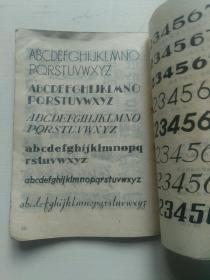 ABCDEFGHIJKLMNO
PQRSTUVWXYZ
ABCDEFGHIJKLMN
OPQRSTUVWXYZ
ABCDEFGHIJKLMN
OPQRSTUVWXYZ
abcdefghijklmnopq
rstuvwxyz
abcdefghijklmnopqrstuvwxyz
abcdefghijklmnopqrstuvwxyz
234567
234567
234567
234567
23456
123456
123456